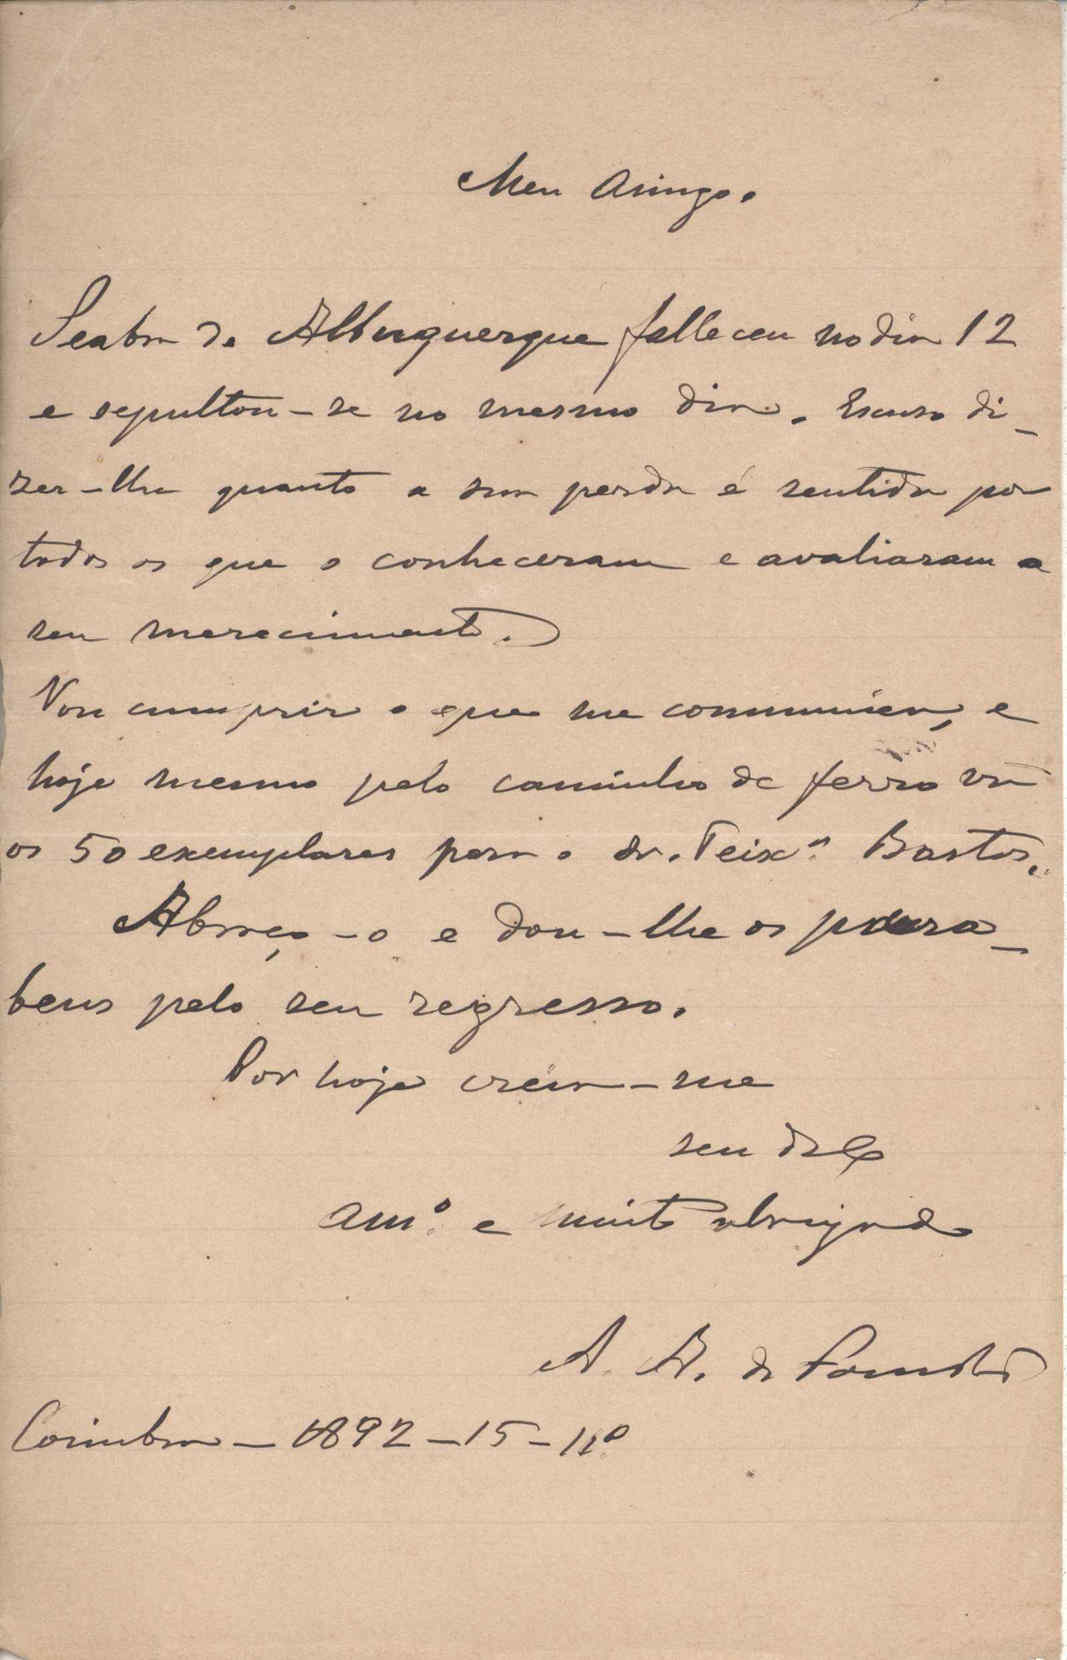 Meu Amigo.
Seabra de Albuquerque falleceu no dia 12
e sepultou-se no mesmo dia. Escuso di-
zer-lhe quanto a sua perda é sentida por
todos os que o conheceram e avaliaram o
seu merecimento.
Vou cumprir o que me communica, e
hoje mesmo pelo caminho de ferro vão
os 50 exemplares para o dr. Teixª Bastos.
Abraço-o e dou-lhe os para-
bens pelo seu regresso.
Por hoje creia-me
seu
amº e muito obrigado
A. A. da
Coimbra - 1892 - 15 - 11º